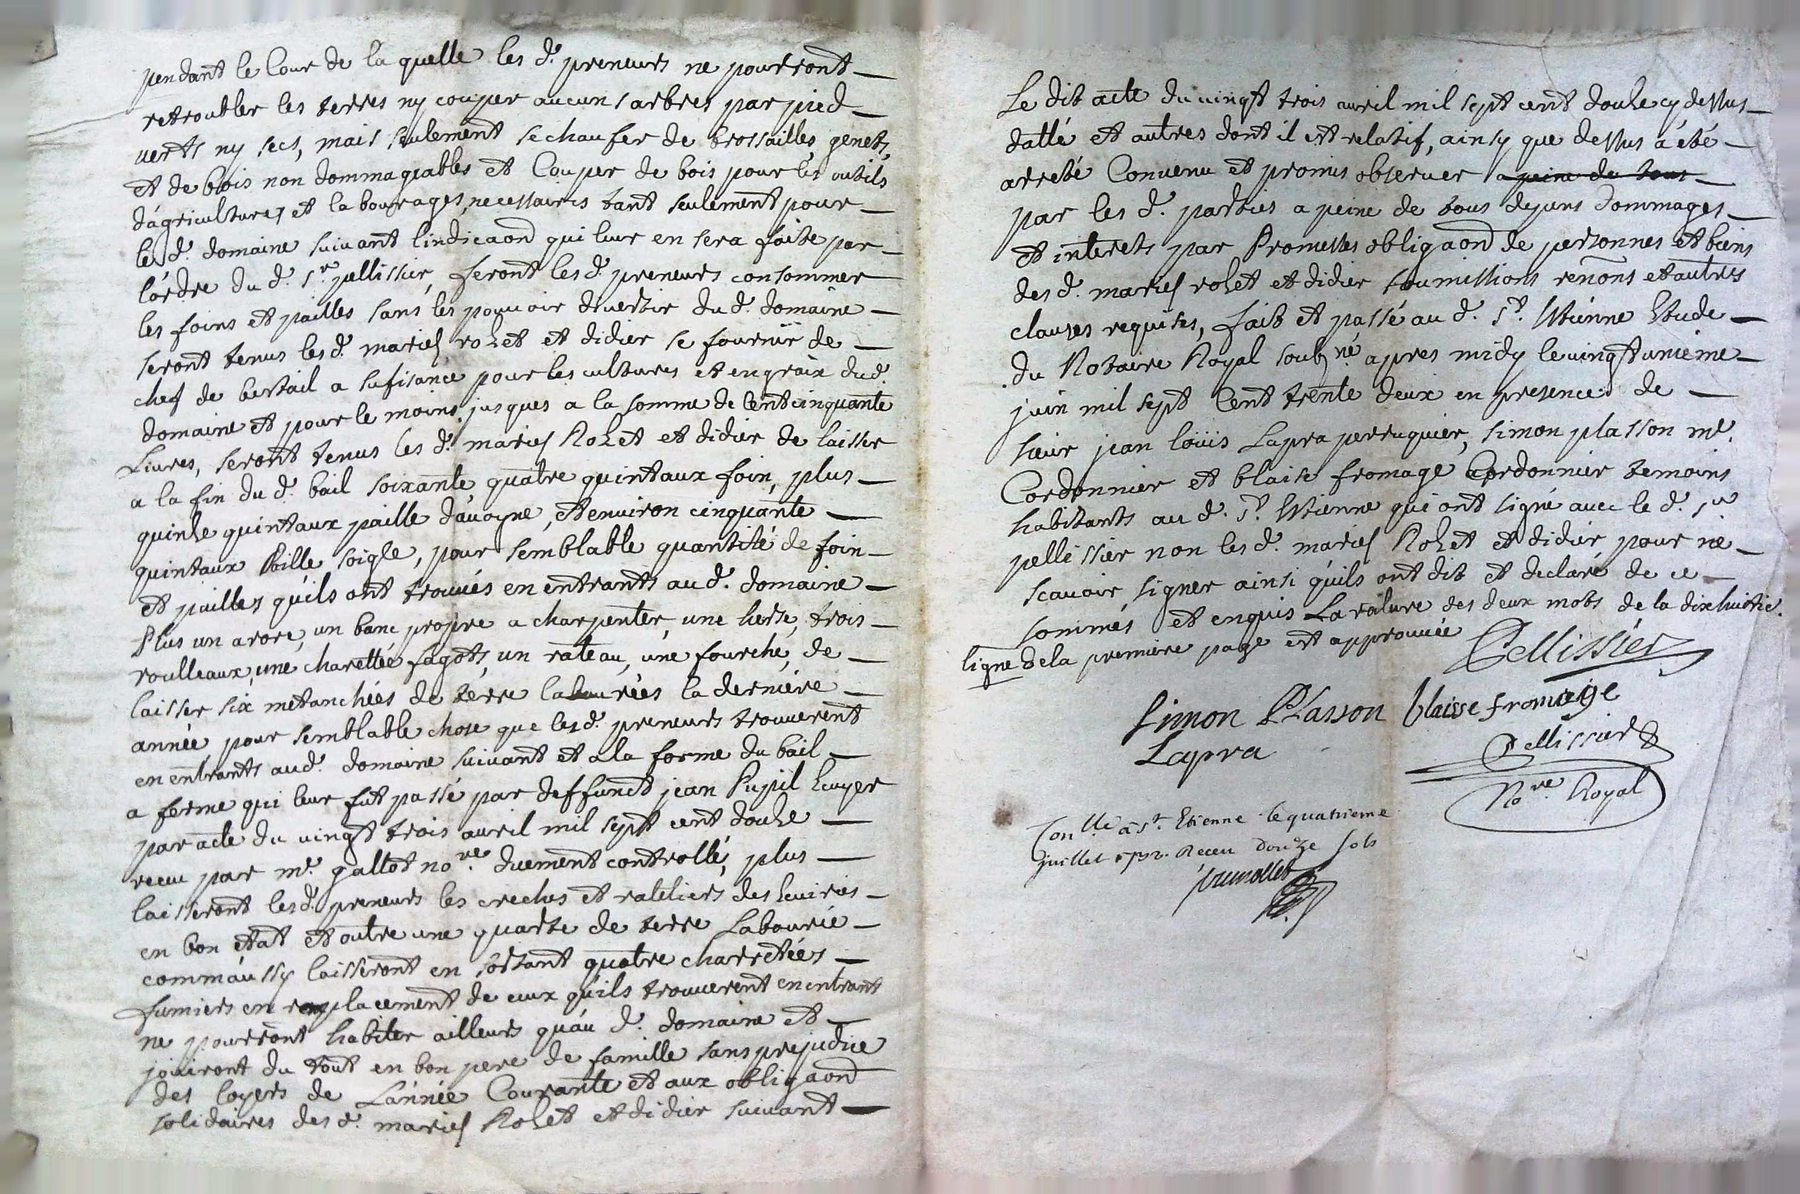 pendant le Cour de la quelle les d. preneurs ne pourront
retroubler les terres ny couper aucuns arbres par pied
verts ny secs, mais seulement se chaufer de brossailles genets,
et de bois non dommageables et Couper de bois pour les outils
d'agricultures et labourages necessaires tant seulement pour
le d. domaine suivant l'indicaon qui leur en sera faite par
l'ordre du d. Sr. pellissier, feront les d. preneurs consommer
les foins et pailles sans les pouvoir divertir du d. domaine
seront tenus les d. mariés rozet et didier se fournir de
chef de bertail a sufisance pour les cultures et engraix dud.
domaine et pour le moins jusques a la somme de Cent cinquante
Livres, seront tenus les d. mariés Rozet et didier de laisser
a la fin du d. bail soixante quatre quintaux foin, plus
quinze quintaux paille d'avoyne, et environ cinquante
quintaux Paille soigle, pour semblable quantité de foin
et pailles qu'ils ont trouvés en entrants au d. domaine
Plus un arore, un banc propre a charpenter, une herse, trois
roulleaux, une charettée fagots, un rateau, une fourche, de
laisser six metanchées de terre labourées la derniére
année pour semblable chose que les d. preneurs trouverent
en entrants aud. domaine suivant et a la forme du bail
a ferme qui leur fut passé par deffunct jean Pupil Ecuyer
par acte du vingt trois avril mil sept cent douze
receu par me. gallot nore. duement controllé, plus
laisseront les d. preneurs les creches et rateliers des Ecuries
en bon état et outre une quarte de terre Labourée
comm'aussy laisseront en sortant quatre charretées
fumiers en remplacement de ceux qu'ils trouverent en entrant
ne pourront habiter ailleurs qu'au d. domaine et
jouiront du tout en bon pere de famille sans prejudice
des loyers de L'année Courante et aux obligaon
solidaires des d. mariés Rozet et didier suivant
Le dit acte du vingt trois avril mil sept cent douze cy dessus
datté et autres dont il est relatif, ainsy que dessus a été
arreté Convenu et promis observer a peine de tous
par les d. parties a peine de tous depens dommages
et interets par Promesses obligaon de personnes et biens
des d. mariés rozet et didier soumissions renons et autres
clauses requises, fait et passé au d. St. Etienne Etude
du Notaire Royal soubné. apres midy le vingt unieme
juin mil sept Cent trente deux en presence de
sieur jean loüis Lapra perruquier, simon plasson me.
Cordonnier et blaise fromage Cordonnier temoins
habitants au d. St. Etienne qui ont signé avec le d. sr
pellissier non les d. mariés Rozet et didier pour ne
scavoir signer ainsi qu'ils ont dit et declaré de ce
sommés et enquis La rature des deux mots de la dixhuitie.
ligne de la premiere page est approuvée
Pellissier
Simon Plasson blaisse fromage
Lapra
Pellissier
Nore. Royal
Conllé a St. Etienne le quatrieme
juillet 1732. Receu douze sols